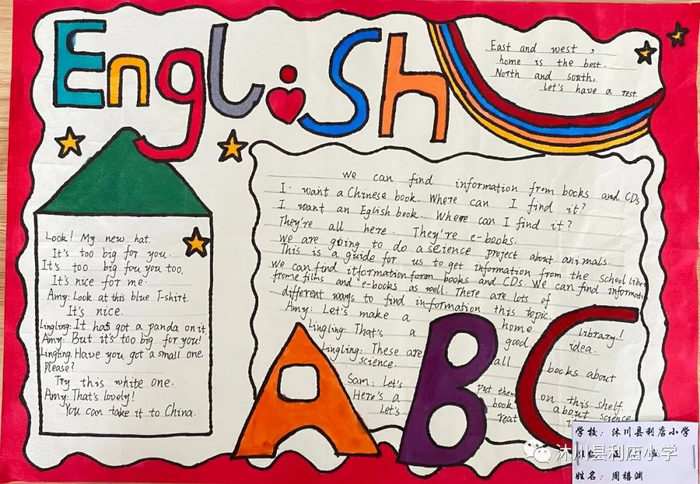 English
East and west,
home is the best.
North and south,
Let's have a rest
Look! My new hat.
It's too big for you.
It's too big fou you too.
It's nice for me.
Amy: Look at this blue T-shirt.
It's nice.
Lingling: It has got a panda on it
Amy: But it's too big for you!
Lingling: Have you got a small one
please?
Try this white one.
Amy: That's lovely!
You can take it to China.
we can find information from books and CDs
I want a Chinese book. Where can I find it?
I want an Eglish book. Where can I find it?
They're all here. They're e-books.
We are going to do a science project about animals
This is a guide for us to get information from the school
we can find information from books and CDs We can find
films and e-books as well. There are lots of
different ways to find information this topic.
Amy: Let's make a home library!
Lingling: That's a good idea.
Lingling: These are all books about
science.
Sam: Let's put them on this shelf
Here's a book about science
Let's
ABC
学校：沐川县利店小学
姓名：周禧渊
沐川县利店小学